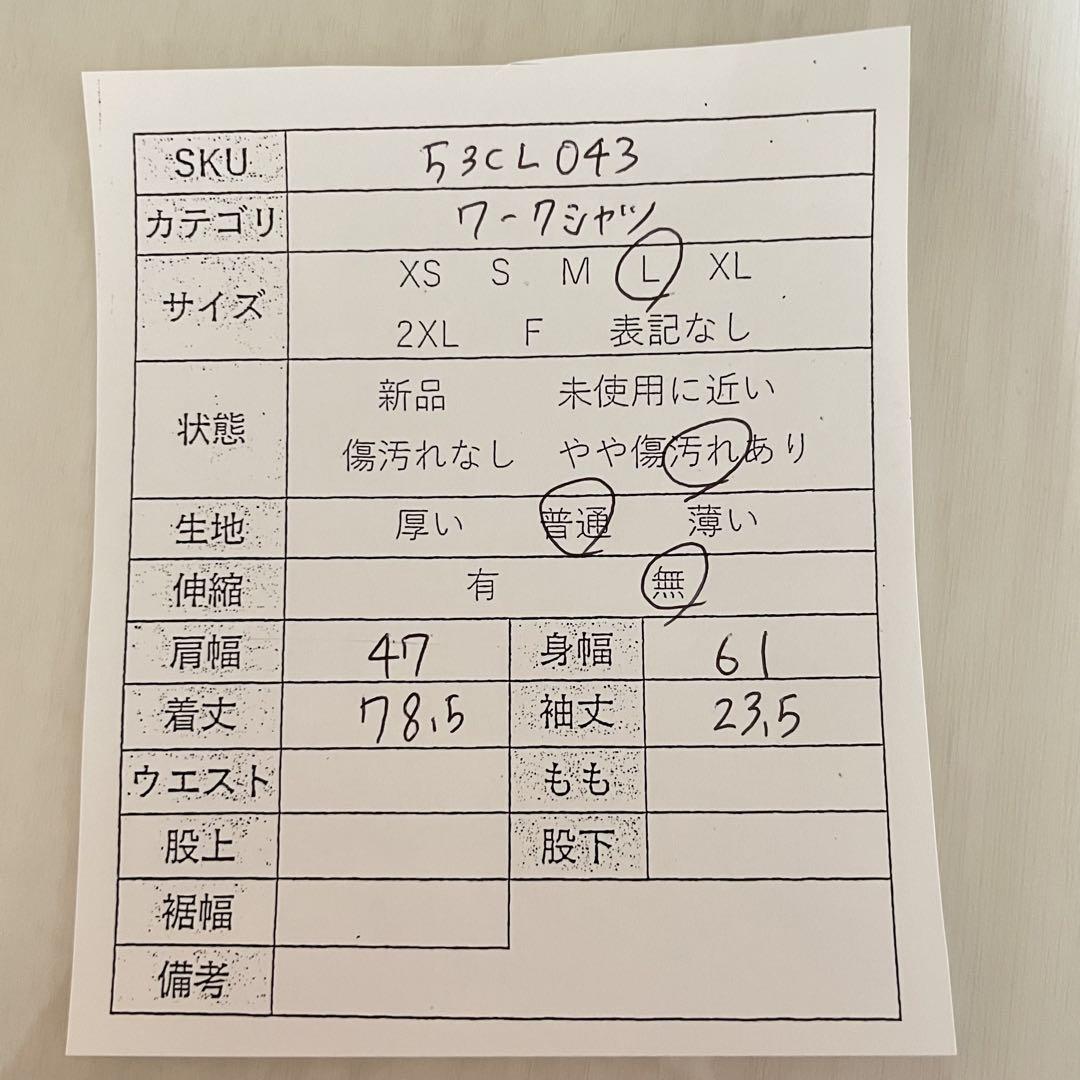 SKU 53CL043
カテゴリ ワークシャツ
サイズ XS S M L XL
2XL F 表記なし
状態 新品 未使用に近い
傷汚れなし やや傷汚れあり
生地 厚い 普通 薄い
伸縮 有 無
肩幅 47 身幅 61
着丈 78.5 袖丈 23.5
ウエスト もも
股上 股下
裾幅
備考